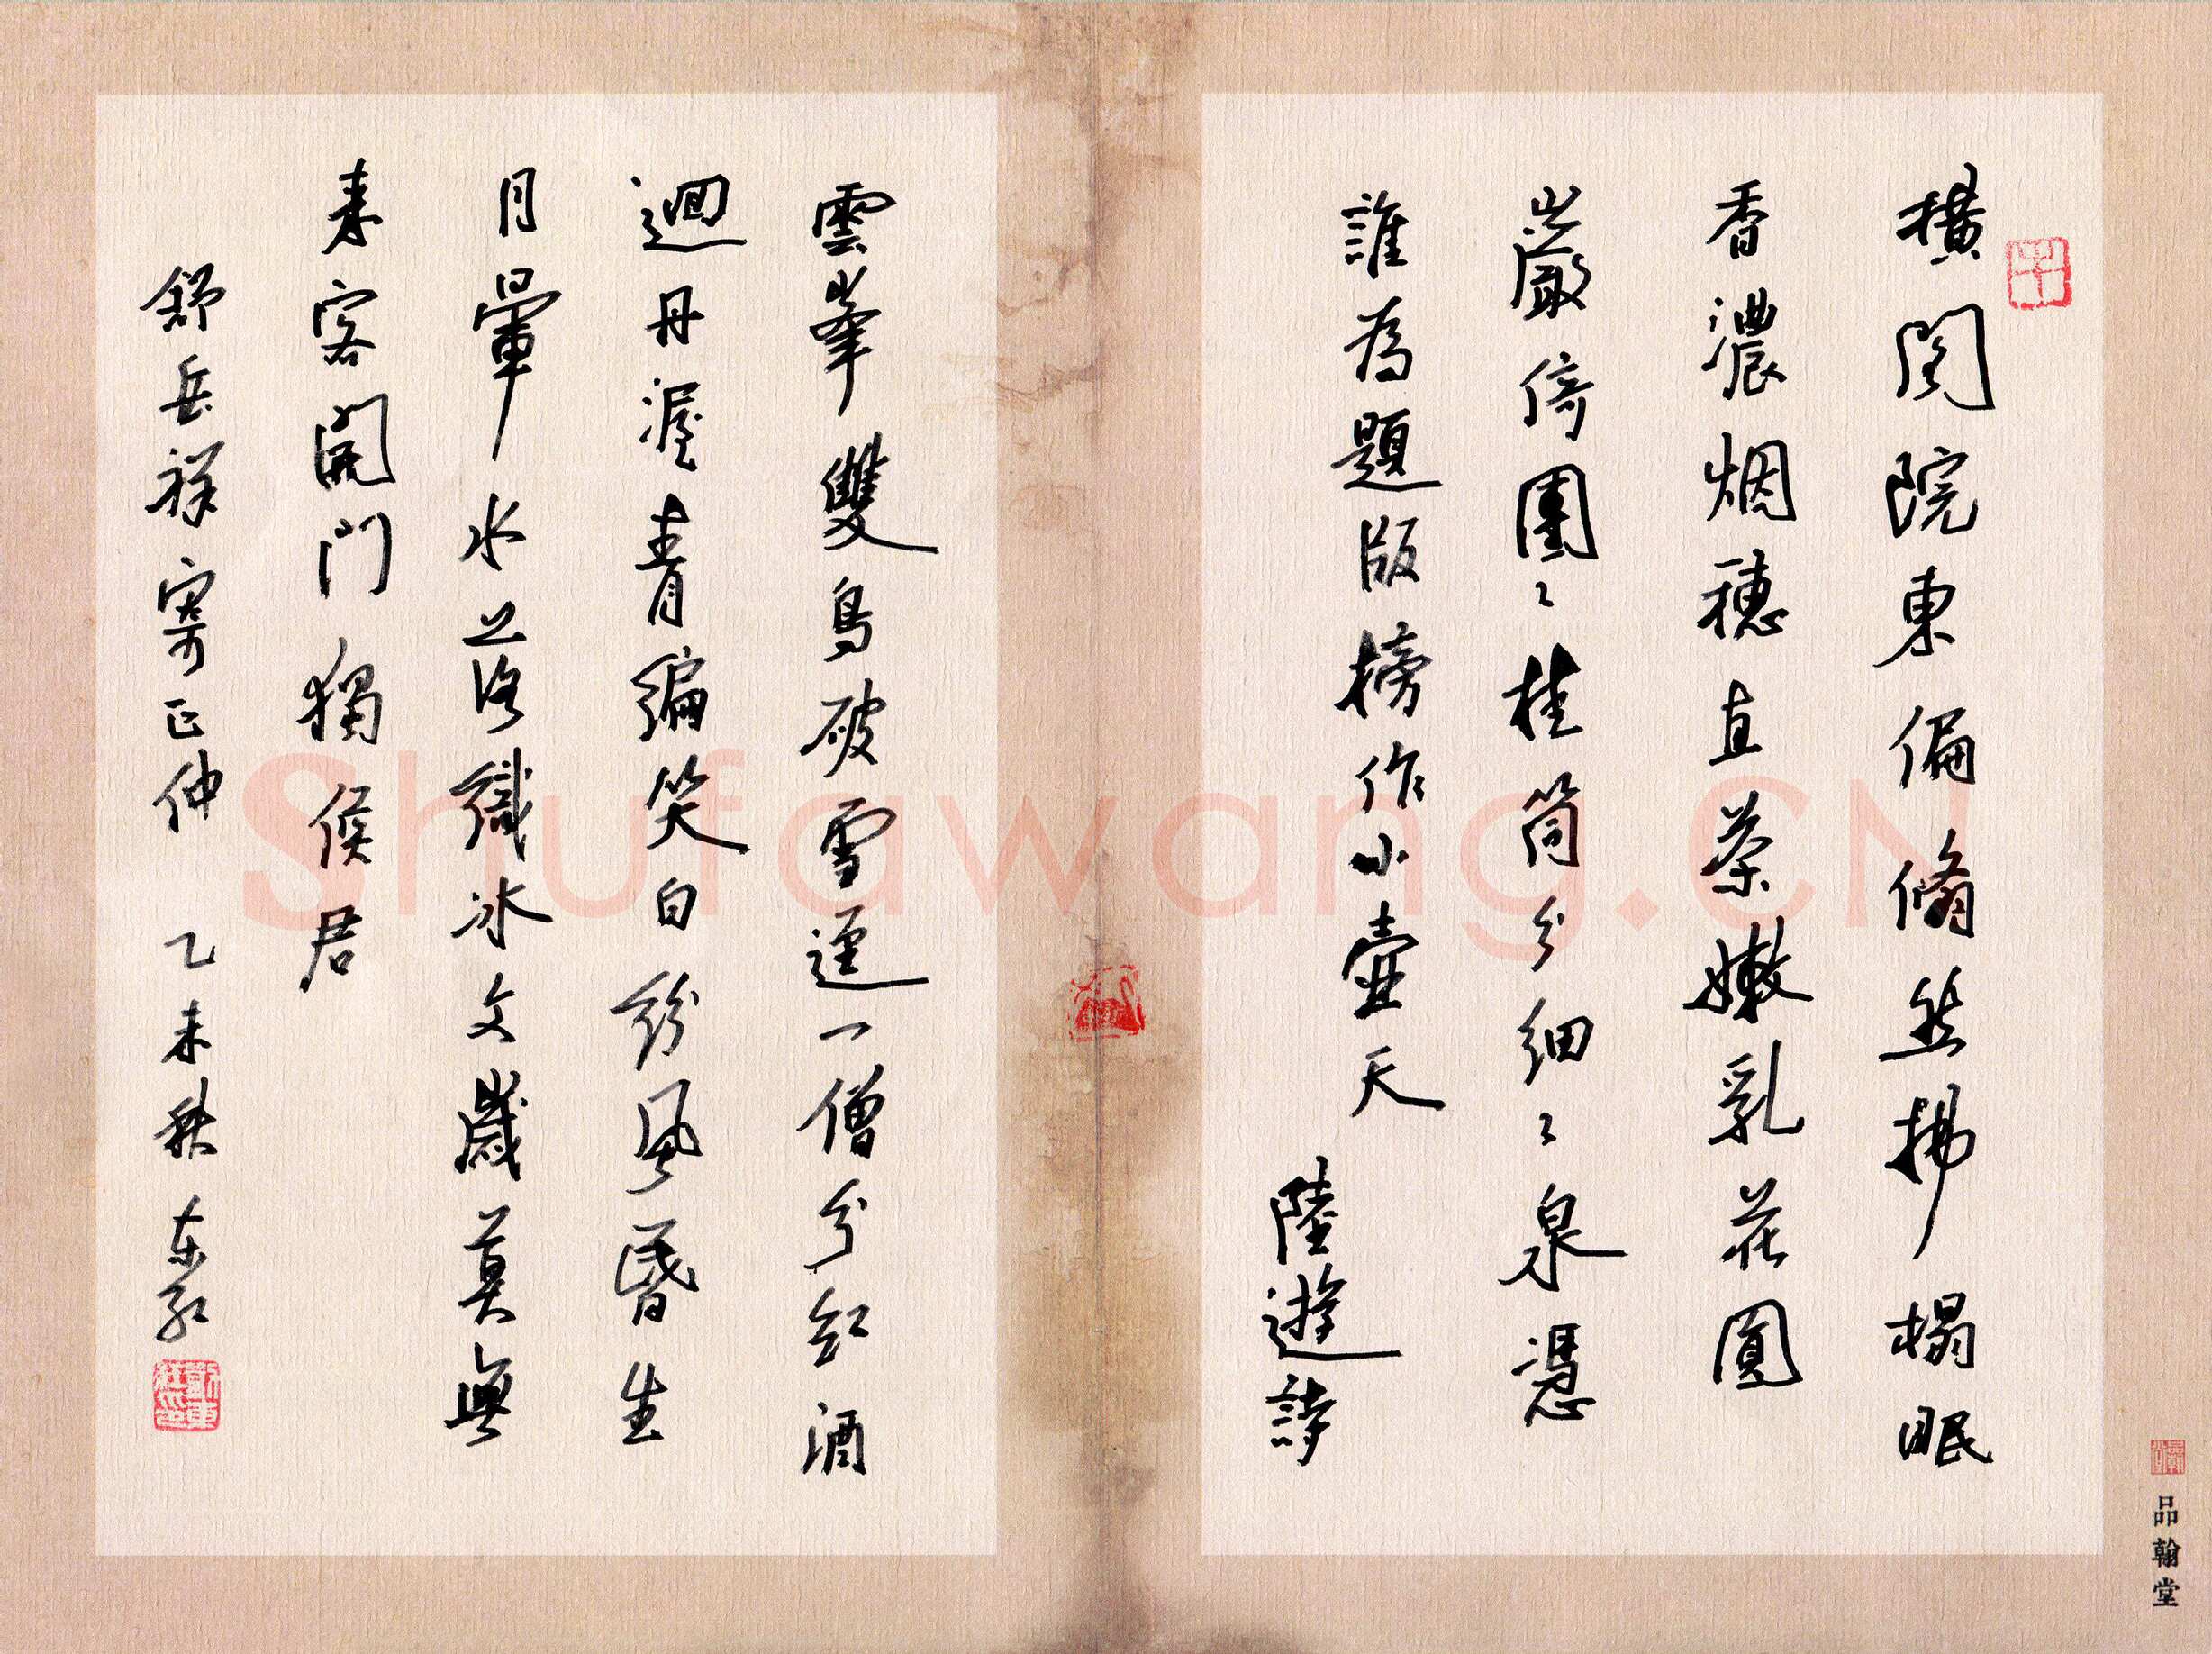 横閣院東偏翛然拂榻眠
香濃烟穗直茶嫩乳花圓
巖倚團〻桂筒分細〻泉憑
誰為題版榜作小壺天
陸遊詩
雲峯雙鳥破雪逕一僧分紅酒
迴丹渥青編笑白紛風昏生
月暈水落織冰文歲莫無
来客開門獨候君
舒岳祥寄正仲 乙未秋 东红
品翰堂
Shufawang.CN